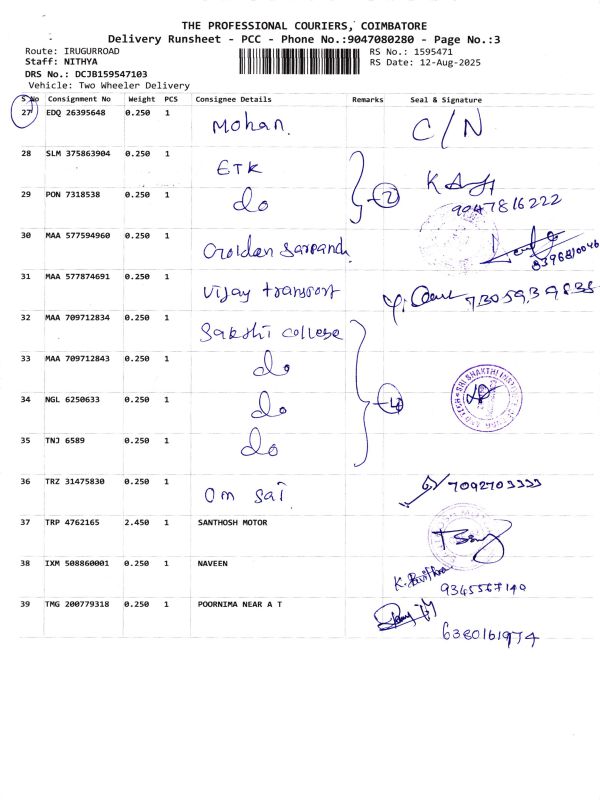 THE PROFESSIONAL COURIERS, COIMBATORE
Delivery Runsheet - PCC - Phone No.:9047080280 - Page No.:3
Route: IRUGURROAD RS No.: 1595471
Staff: NITHYA RS Date: 12-Aug-2025
DRS No.: DCJB159547103
Vehicle: Two Wheeler Delivery
S No Consignment No Weight PCS Consignee Details Remarks Seal & Signature
27 EDQ 26395648 0.250 1 Mohan. C/N
28 SLM 375863904 0.250 1 ETK
29 PON 7318538 0.250 1 do 2 9047816222
30 MAA 577594960 0.250 1 8396810046
31 MAA 577874691 0.250 1 Vijay transport 7305939835
32 MAA 709712834 0.250 1 Sakthi college
33 MAA 709712843 0.250 1 do
34 NGL 6250633 0.250 1 do 4
35 TNJ 6589 0.250 1 do
36 TRZ 31475830 0.250 1 Om sai 7092703333
37 TRP 4762165 2.450 1 SANTHOSH MOTOR
38 IXM 508860001 0.250 1 NAVEEN K. Pavithra 9345567140
39 TMG 200779318 0.250 1 POORNIMA NEAR A T 6380161974